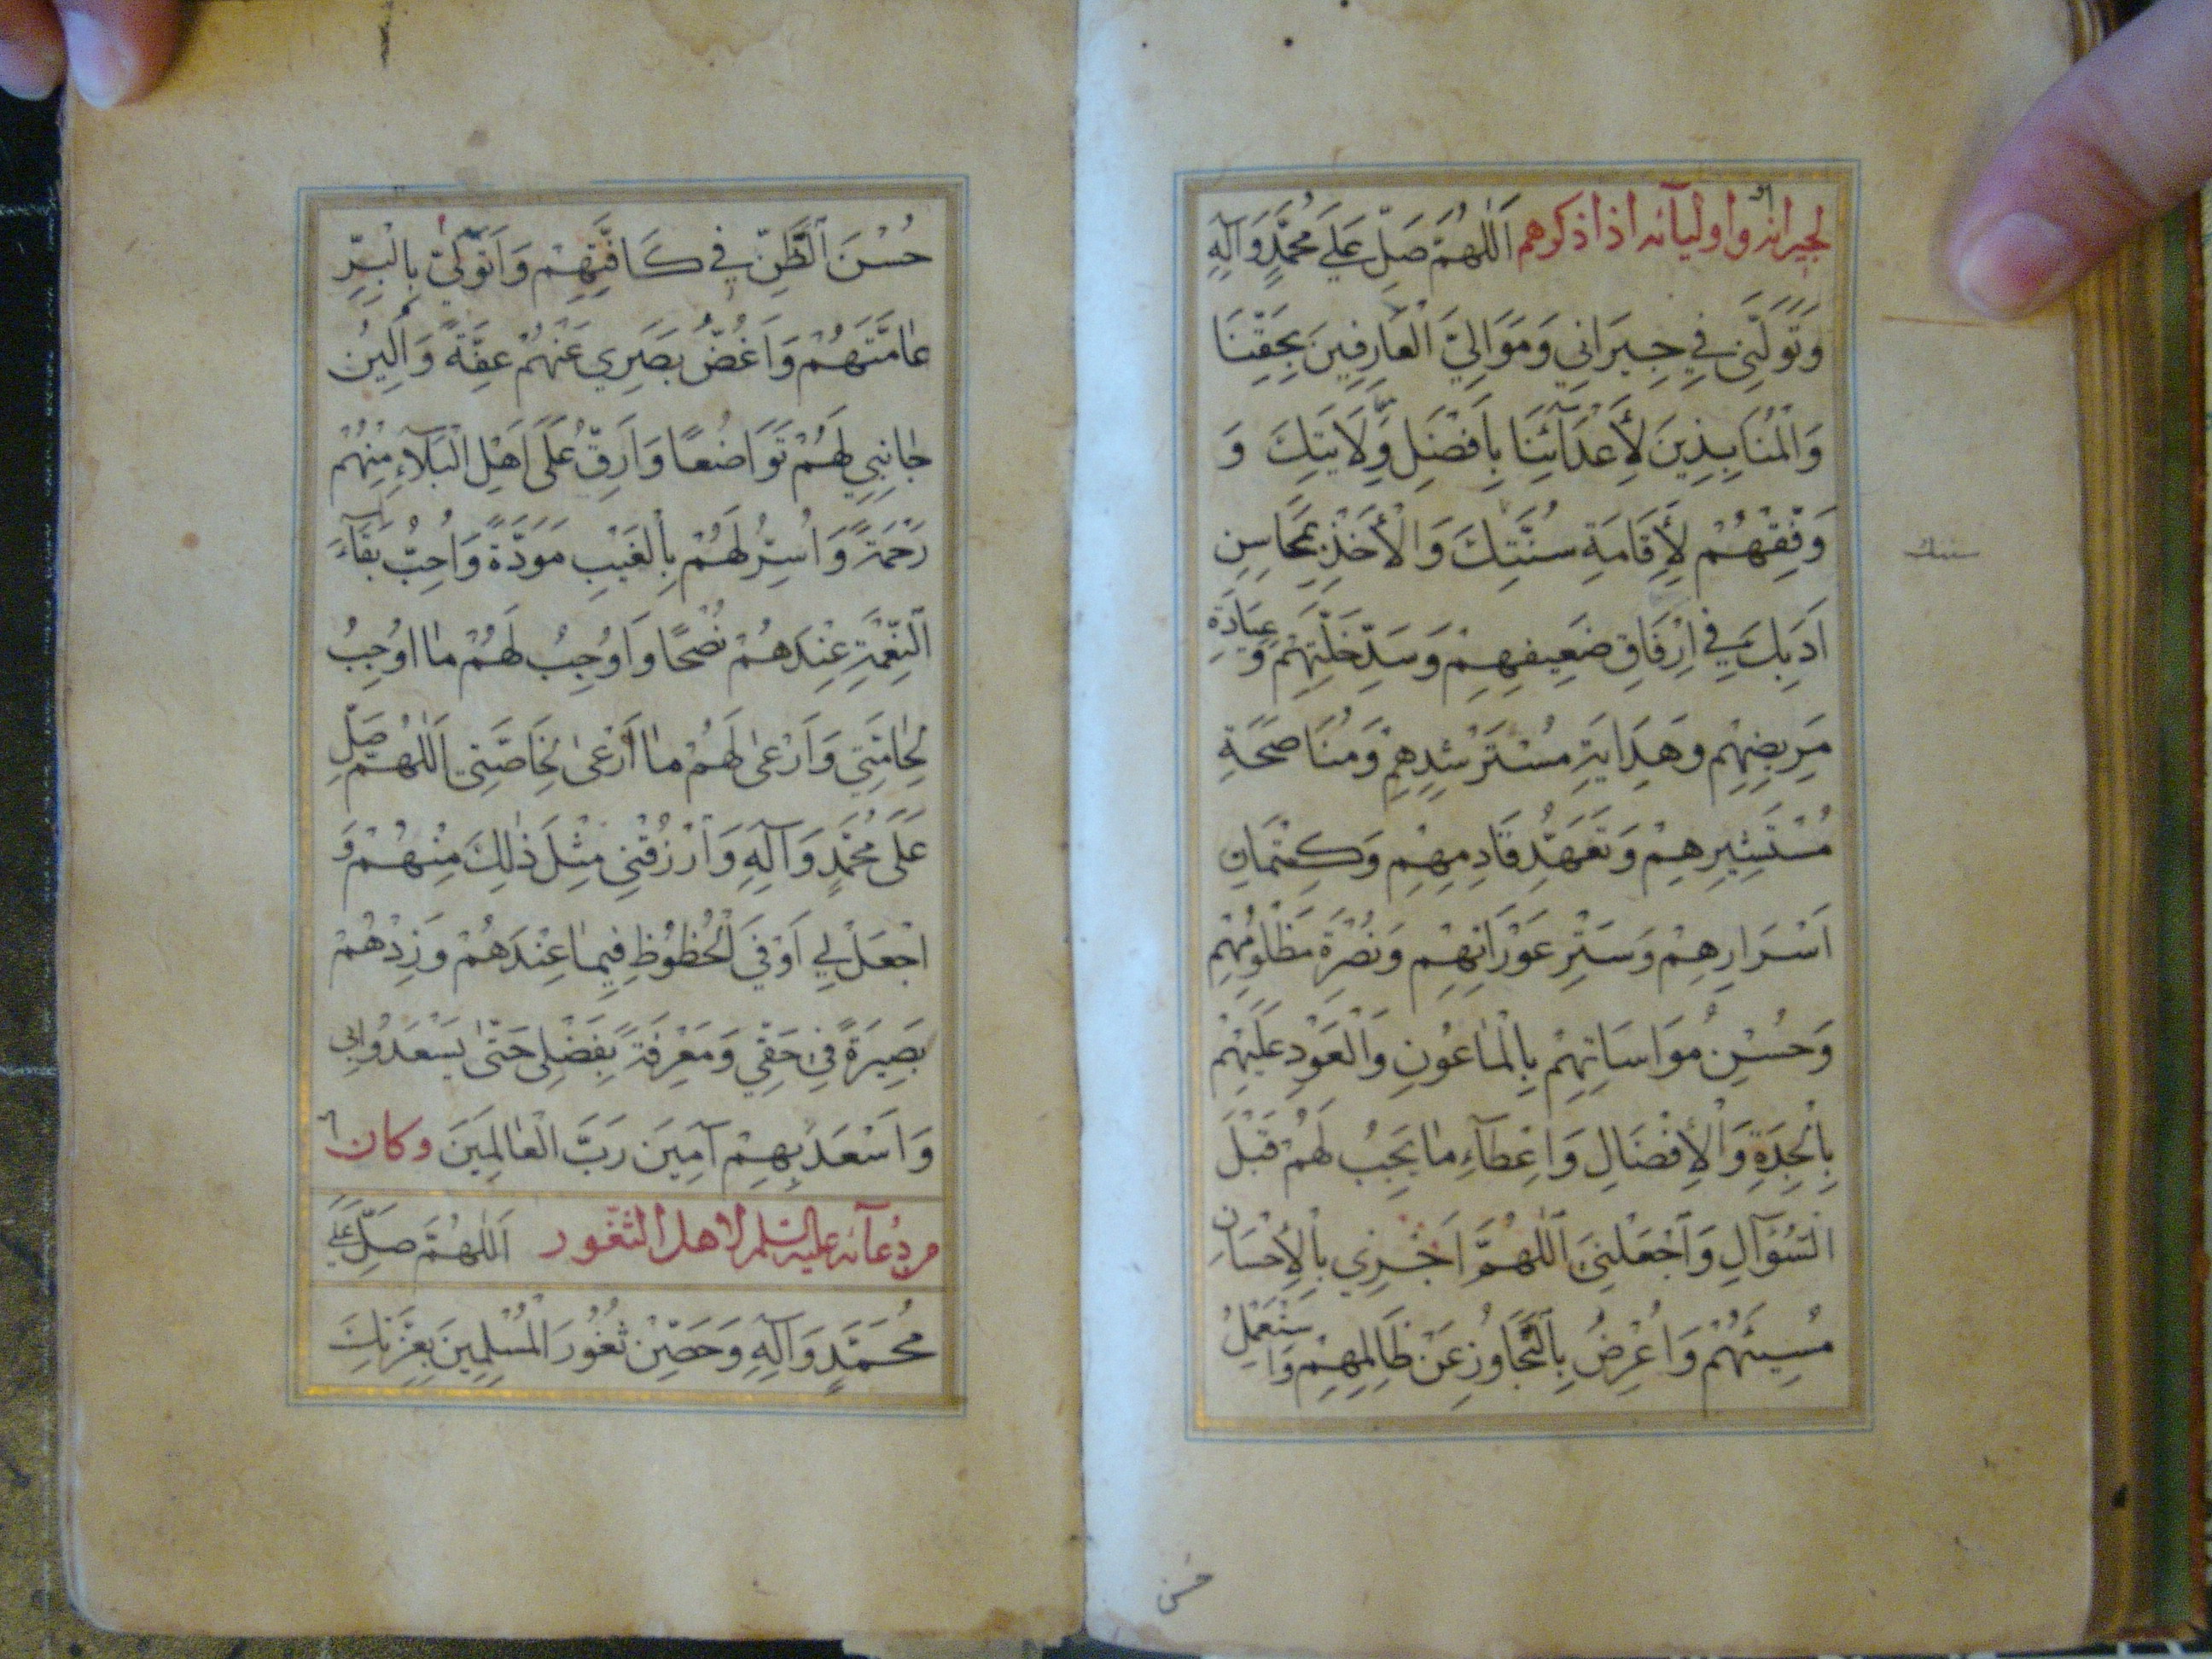 لجيرانه واوليآئه اذا ذكرهم اَللّٰهُمَّ صَلِّ عَلٰى مُحَمَّدٍ وَآلِهِ
وَتَوَلَّنِي فِي جِيرَانِي وَمَوَالِيَّ الْعَارِفِينَ بِحَقِّنَا
وَالْمُنَابِذِينَ لِأَعْدَآئِنَا بِاَفْضَلِ وَلَايَتِكَ وَ
وَفِّقْهُمْ لِأِقَامَةِ سُنَّتِكَ وَالْأَخْذِ بِمَحَاسِنِ
سنتك
اَدَبِكَ فِي اِرْفَاقِ ضَعِيفِهِمْ وَسَدِّ خَلَّتِهِمْ وَ عِيَادَةِ
مَرِيضِهِمْ وَهِدَايَةِ مُسْتَرْشِدِهِمْ وَمُنَاصَحَةِ
مُسْتَشِيرِهِمْ وَتَعَهُّدِ قَادِمِهِمْ وَكِتْمَانِ
اَسْرَارِهِمْ وَسَتْرِ عَوْرَاتِهِمْ وَنُصْرَةِ مَظْلُومِهِمْ
وَحُسْنِ مُوَاسَاتِهِمْ بِالْمَاعُونِ وَالْعَوْدِ عَلَيْهِمْ
بِالْجِدَةِ وَالْأِفْضَالِ وَاِعْطَآءِ مَا يَجِبُ لَهُمْ قَبْلَ
السُّؤَآلِ وَاَجْعَلْنِيَ اَللّٰهُمَّ اَجْزِي بِالْأِحْسَانِ
مُسِيئَهُمْ وَاُعْرِضُ بِالتَّجَاوُزِ عَنْ ظَالِمِهِمْ وَاَسْتَعْمِلُ
حسن
حُسْنَ الظَّنِّ فِي كَافَّتِهِمْ وَاَتَوَلّٰى بِالْبِرِّ
عَامَّتَهُمْ وَاَغُضُّ بَصَرِي عَنْهُمْ عِفَّةً وَاُلِينُ
جَانِبِي لَهُمْ تَوَاضُعًا وَاَرِقُّ عَلٰى اَهْلِ الْبَلَآءِ مِنْهُمْ
رَحْمَةً وَاُسِرُّ لَهُمْ بِالْغَيْبِ مَوَدَّةً وَاُحِبُّ بَقَآءَ
النِّعْمَةِ عِنْدَهُمْ نُصْحًا وَاُوجِبُ لَهُمْ مَا اُوجِبُ
لِحَامَّتِي وَاَرْعٰى لَهُمْ مَا اَرْعٰى لِخَاصَّتِي اَللّٰهُمَّ صَلِّ
عَلٰى مُحَمَّدٍ وَآلِهِ وَارْزُقْنِي مِثْلَ ذٰلِكَ مِنْهُمْ وَ
اجْعَلْ لِي اَوْفَى الْحُظُوظِ فِيمَا عِنْدَهُمْ وَزِدْهُمْ
بَصِيرَةً فِي حَقِّي وَمَعْرِفَةً بِفَضْلِي حَتّٰى يَسْعَدُوا بِي
وَاَسْعَدَ بِهِمْ آمِينَ رَبَّ الْعَالَمِينَ وكان
من دعآئه عليه السلم لاهل الثغور اَللّٰهُمَّ صَلِّ عَلٰى
مُحَمَّدٍ وَآلِهِ وَحَصِّنْ ثُغُورَ الْمُسْلِمِينَ بِعِزَّتِكَ